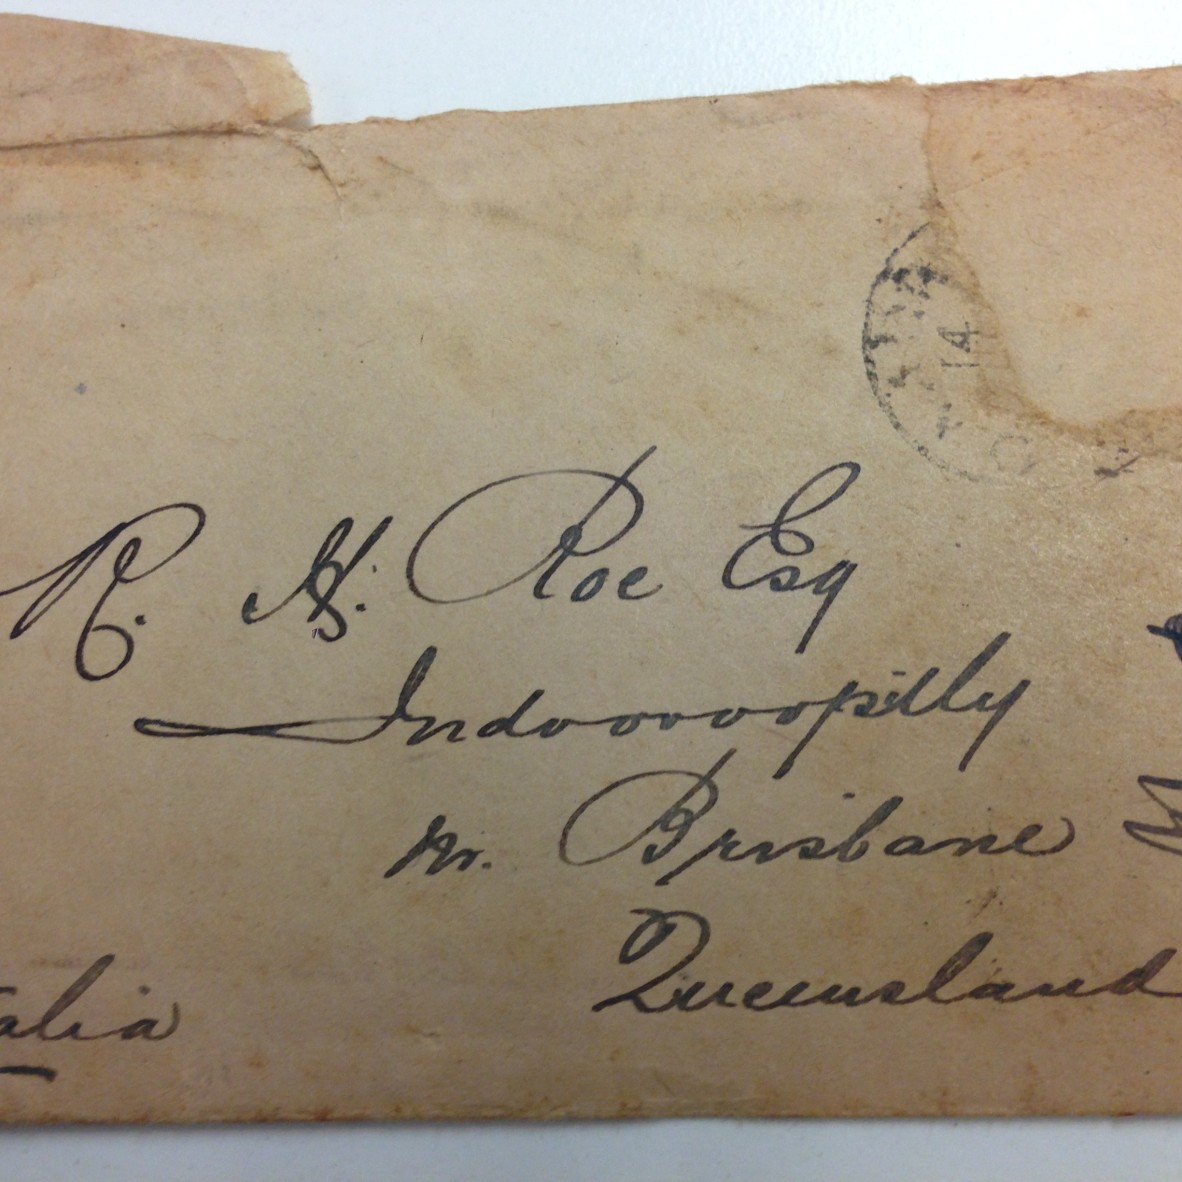 14
R. H. Roe Esq
Indooroopilly
Nr. Brisbane
Queensland
alia